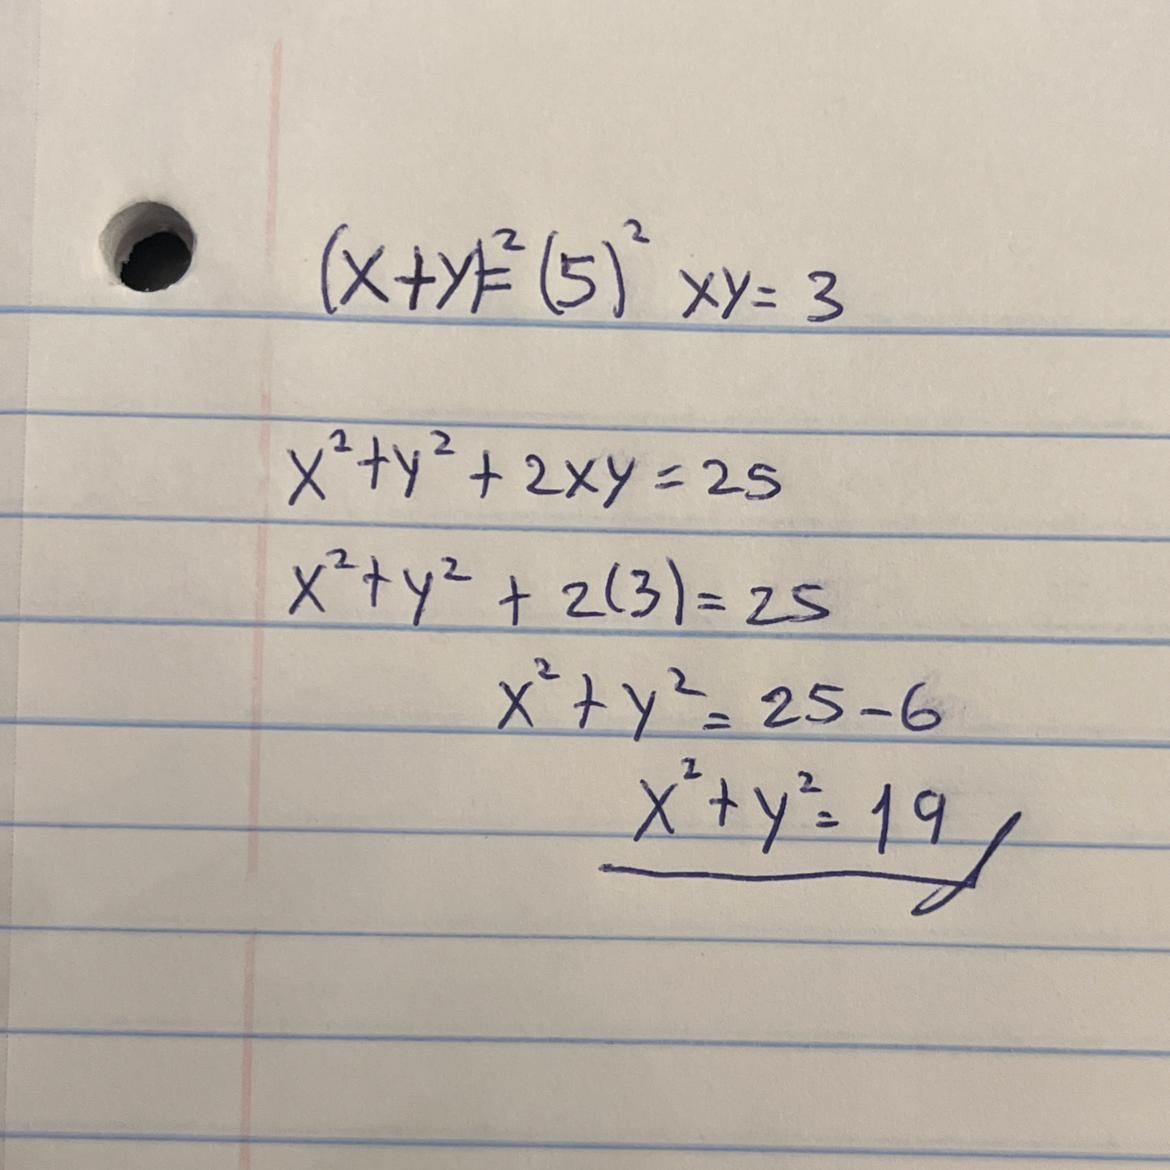 (x+y)²=(5)² xy=3
x²+y²+2xy=25
x²+y²+2(3)=25
x²+y²=25-6
x²+y²=19